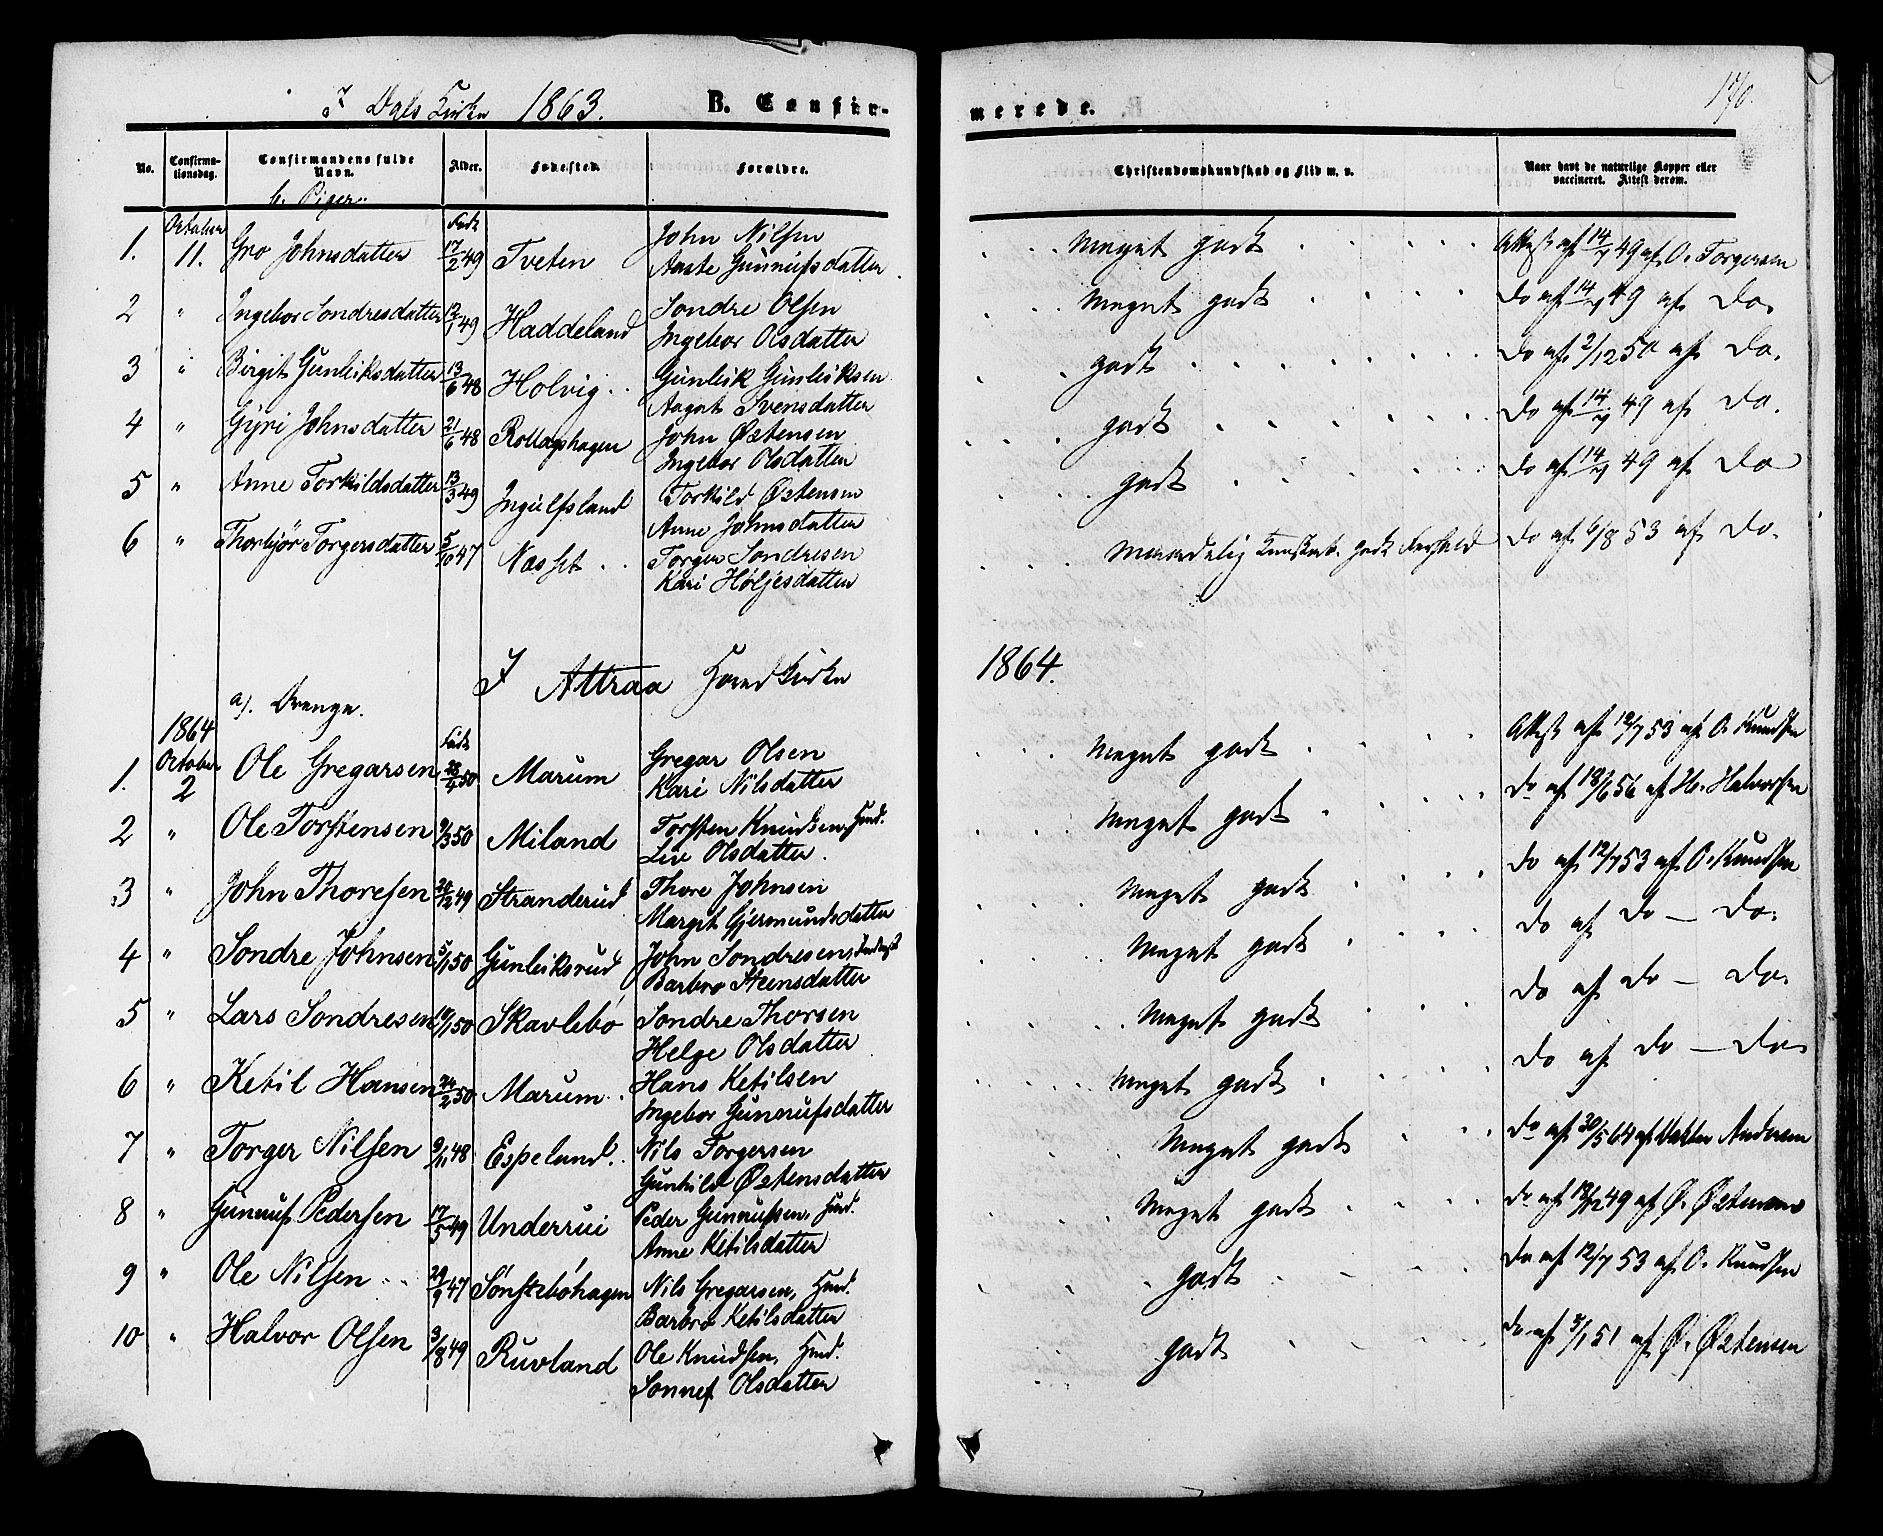 I Dals Kirke 1863. B. Confir-
merede. 170.
No. Confirmationsdag. Confirmandens fulde Navn. Alder. Fødested. Forældre. Christendomskundskab og Flid m. v. Naar havt de naturlige Kopper eller vaccineret. Attest derom.
b. Piger
October Født
1. 11. Gro Johnsdatter 17/2 49 Tveten John Nilsen meget godt Attest af 14/7 49 af O. Torgersen
Aaste Gunnufsdatter
2 " Ingebor Sondresdatter 12/1 49 Haddeland Sondre Olsen meget godt do af 14/7 49 af do.
Ingebor Olsdatter
3 " Birgit Gunleiksdatter 13/6 48 Holvig Gunleik Gunleiksen godt do af 2/12 50 af do.
Aagot Svensdatter
4 " Gyri Johnsdatter 21/6 48 Rollagshagen John Østensen godt do af 14/7 49 af do.
Ingebor Olsdatter
5 " Anne Torkildsdatter 13/3 49 Ingulfsland Torkild Østensen godt do af 14/7 49 af do
Anne Johnsdatter
6 " Thorbjør Torgersdatter 5/10 47 Næsset Torger Sondresen maadelig Kundskab. godt Forhold do af 6/8 53 af do.
Kari Høljesdatter
I Attraa Hovedkirke 1864.
a). Drenge.
1864
October Født
1. 2 Ole Gregarsen 28/4 50 Marum Gregar Olsen meget godt Attest af 12/7 53 af O. Knudsen
Kari Nilsdatter
2 " Ole Torstensen 9/3 50 Miland Torsten Knudsen, Huusmd. meget godt do af 18/6 56 af H. Halvorsen
Liv Olsdatter
3 " John Thoresen 20/12 49 Stranderud Thore Johnsen meget godt do af 12/7 53 af O. Knudsen
Margit Gjermundsdatter
4 " Sondre Johnsen 5/1 50 Gunleiksrud John Sondresen, meget godt do af do — do.
Barbro Steensdatter
5 " Lars Sondresen 10/1 50 Skavlebø Sondre Thorsen meget godt do af do — do.
Helge Olsdatter
6 " Ketil Hansen 24/2 50 Marum Hans Ketilsen meget godt do af do — do
Ingebor Gunnufsdatter
7 " Torger Nilsen 9/11 48 Espeland Nils Torgersen meget godt do af 30/5 64 af Doktor Andersen
Gunhild Østensdatter
8 " Gunnuf Pedersen 17/5 49 Underrui Peder Gunnufsen, Huusmd. meget godt do af 12/12 49 af Ø. Østensen
Anne Ketilsdatter
9 " Ole Nilsen 29/9 47 Sønstebøhagen Nils Gregarsen, Huusmd. godt do af 12/7 53 af O. Knudsen
Barbro Ketilsdatter
10 " Halvor Olsen 3/8 49 Ruvland Ole Knudsen, Huusmd. godt do af 3/1 51 af Ø. Østensen
Sonnef Olsdatter